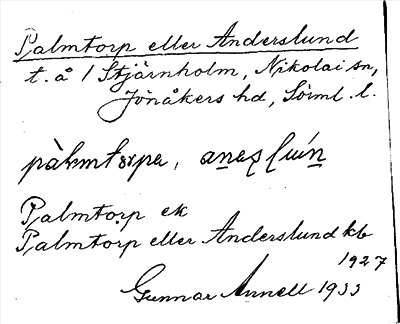 Palmtorp eller Anderslund
t. å / Stjärnholm, Nikolai sn,
Jönåkers hd, Söiml. l.
Palmtorp ek
Palmtorp eller Anderslund kb
1927
Gunnar Annell 1933